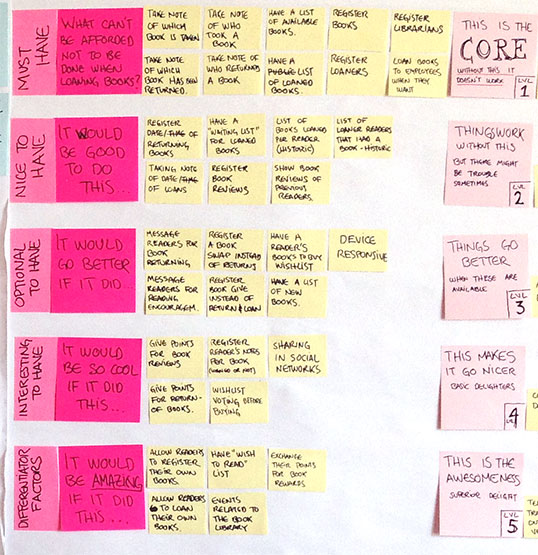 MUST
HAVE
WHAT CAN'T
BE AFFORDED
NOT TO BE
DONE WHEN
LOANING BOOKS?
TAKE NOTE
OF WHICH
BOOK IS TAKEN
TAKE NOTE
OF WHO
TOOK A
BOOK
HAVE A LIST
OF AVAILABLE
BOOKS.
REGISTER
BOOKS
REGISTER
LIBRARIANS
TAKE NOTE
OF WHICH
BOOK HAS BEEN
RETURNED.
TAKE NOTE OF
WHO RETURNED
A BOOK.
HAVE A
PUBLIC LIST
OF LOANED
BOOKS.
REGISTER
LOANERS
LOAN BOOKS
TO EMPLOYEES
WHEN THEY
WANT
THIS IS THE
CORE
WITHOUT THIS IT
DOESN'T WORK
LVL
1
NICE TO
HAVE
IT WOULD
BE GOOD
TO DO
THIS...
REGISTER
DATE/TIME OF
RETURNING
BOOKS
HAVE A
"WAITING LIST"
FOR LOANED
BOOKS
LIST OF
BOOKS LOANED
PER READER
(HISTORIC)
LIST OF
LOANER READERS
THAT HAD A
BOOK - HISTORIC
TAKING NOTE
OF DATE/TIME
OF LOANS
REGISTER
BOOK
REVIEWS
SHOW BOOK
REVIEWS OF
PREVIOUS
READERS.
THINGS WORK
WITHOUT THIS
BUT THERE MIGHT
BE TROUBLE
SOMETIMES
LVL
2
OPTIONAL
TO HAVE
IT WOULD
GO BETTER
IF IT DID...
MESSAGE
READERS FOR
BOOK
RETURNING
REGISTER
A BOOK
SWAP INSTEAD
OF RETURN
HAVE A
READER'S
BOOKS TO BUY
WISHLIST
DEVICE
RESPONSIVE
MESSAGE
READERS FOR
READING
ENCOURAGEM.
REGISTER
BOOK GIVE
INSTEAD OF
RETURN & LOAN
HAVE A LIST
OF NEW
BOOKS.
THINGS GO
BETTER
WHEN THESE ARE
AVAILABLE
LVL
3
INTERESTING
TO HAVE
IT WOULD
BE SO COOL
IF IT DID
THIS...
GIVE POINTS
FOR BOOK
REVIEWS
REGISTER
READER'S NOTES
FOR BOOK
SHARING
IN SOCIAL
NETWORKS
GIVE POINTS
FOR RETURN-
OF BOOKS.
WISHLIST
VOTING BEFORE
BUYING
THIS MAKES
IT GO NICER
BASIC DELIGHTERS
LVL
4
DIFFERENTIATOR
FACTORS
IT WOULD
BE AMAZING
IF IT DID
THIS...
ALLOW READERS
TO REGISTER
THEIR OWN
BOOKS
HAVE "WISH
TO READ"
LIST
EXCHANGE
THEIR POINTS
FOR BOOK
REWARDS
ALLOW READERS
TO LOAN
THEIR OWN
BOOKS.
EVENTS
RELATED TO
THE BOOK
LIBRARY
THIS IS THE
AWESOMENESS
SUPERIOR DELIGHT
LVL
5